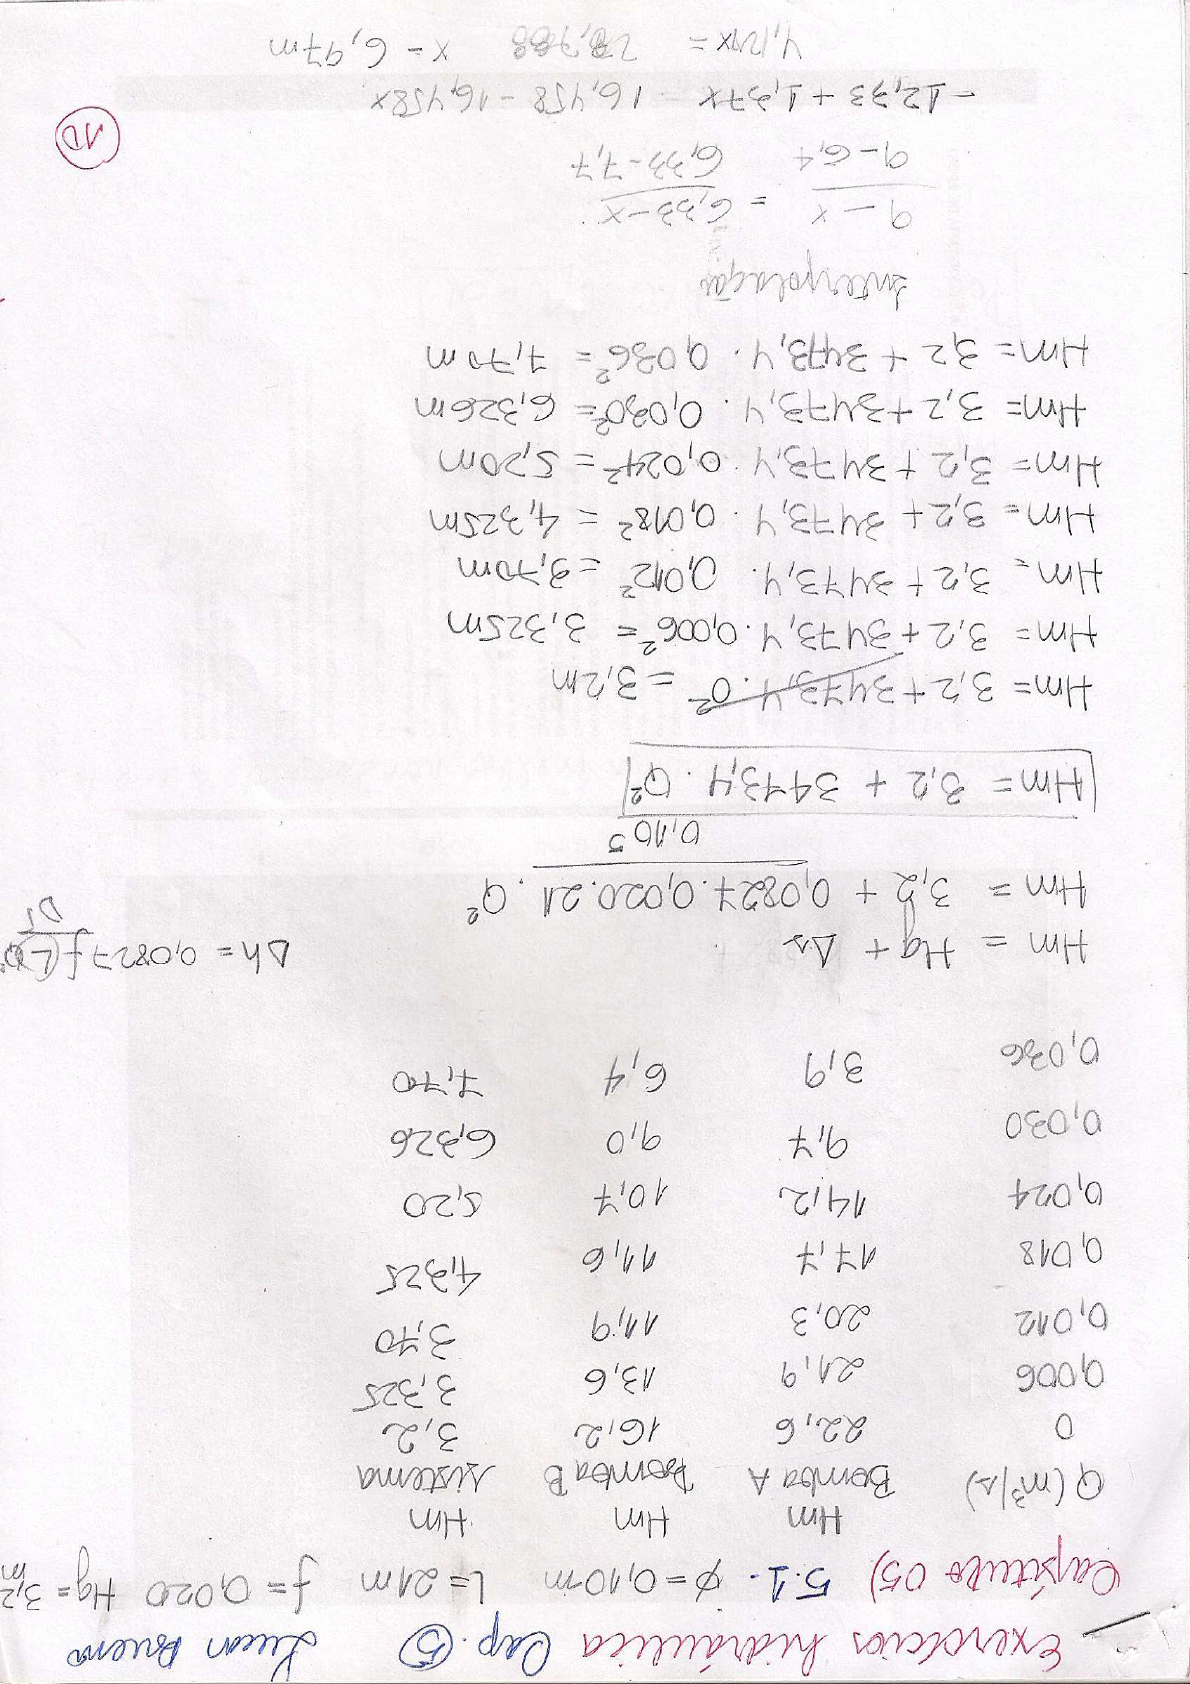 Exercícios hidráulica Cap. 5 Luan Bueno
Capítulo 05) 5.1. ϕ=0,10m L=21m f=0,020 Hg=3,2 m
Hm Hm Hm
Q (m³/s) Bomba A Bomba B sistema
0 22,6 16,2 3,2
0,006 21,9 13,6 3,325
0,012 20,3 11,9 3,70
0,018 17,7 11,6 4,325
0,024 14,2 10,7 5,20
0,030 9,7 9,0 6,326
0,036 3,9 6,4 7,70
Hm = Hg + Δs
Δh = 0,0827 f L Q² / D⁵
Hm = 3,2 + 0,0827.0,020.21 . Q²
0,10⁵
Hm = 3,2 + 3473,4 . Q²
Hm= 3,2+3473,4.0² = 3,2m
Hm= 3,2+3473,4.0,006² = 3,325m
Hm= 3,2+3473,4. 0,012² = 3,70m
Hm= 3,2+ 3473,4. 0,018² = 4,325m
Hm= 3,2 + 3473,4. 0,024² = 5,20m
Hm= 3,2+3473,4. 0,030² = 6,326m
Hm= 3,2 + 3473,4. 0,036² = 7,70m
Interpolação
9-x = 6,33-x
9-6,4 6,33-7,7
-12,33 + 1,37x = 16,458 - 16,458x
4,124x = 28,788 x = 6,97m
10